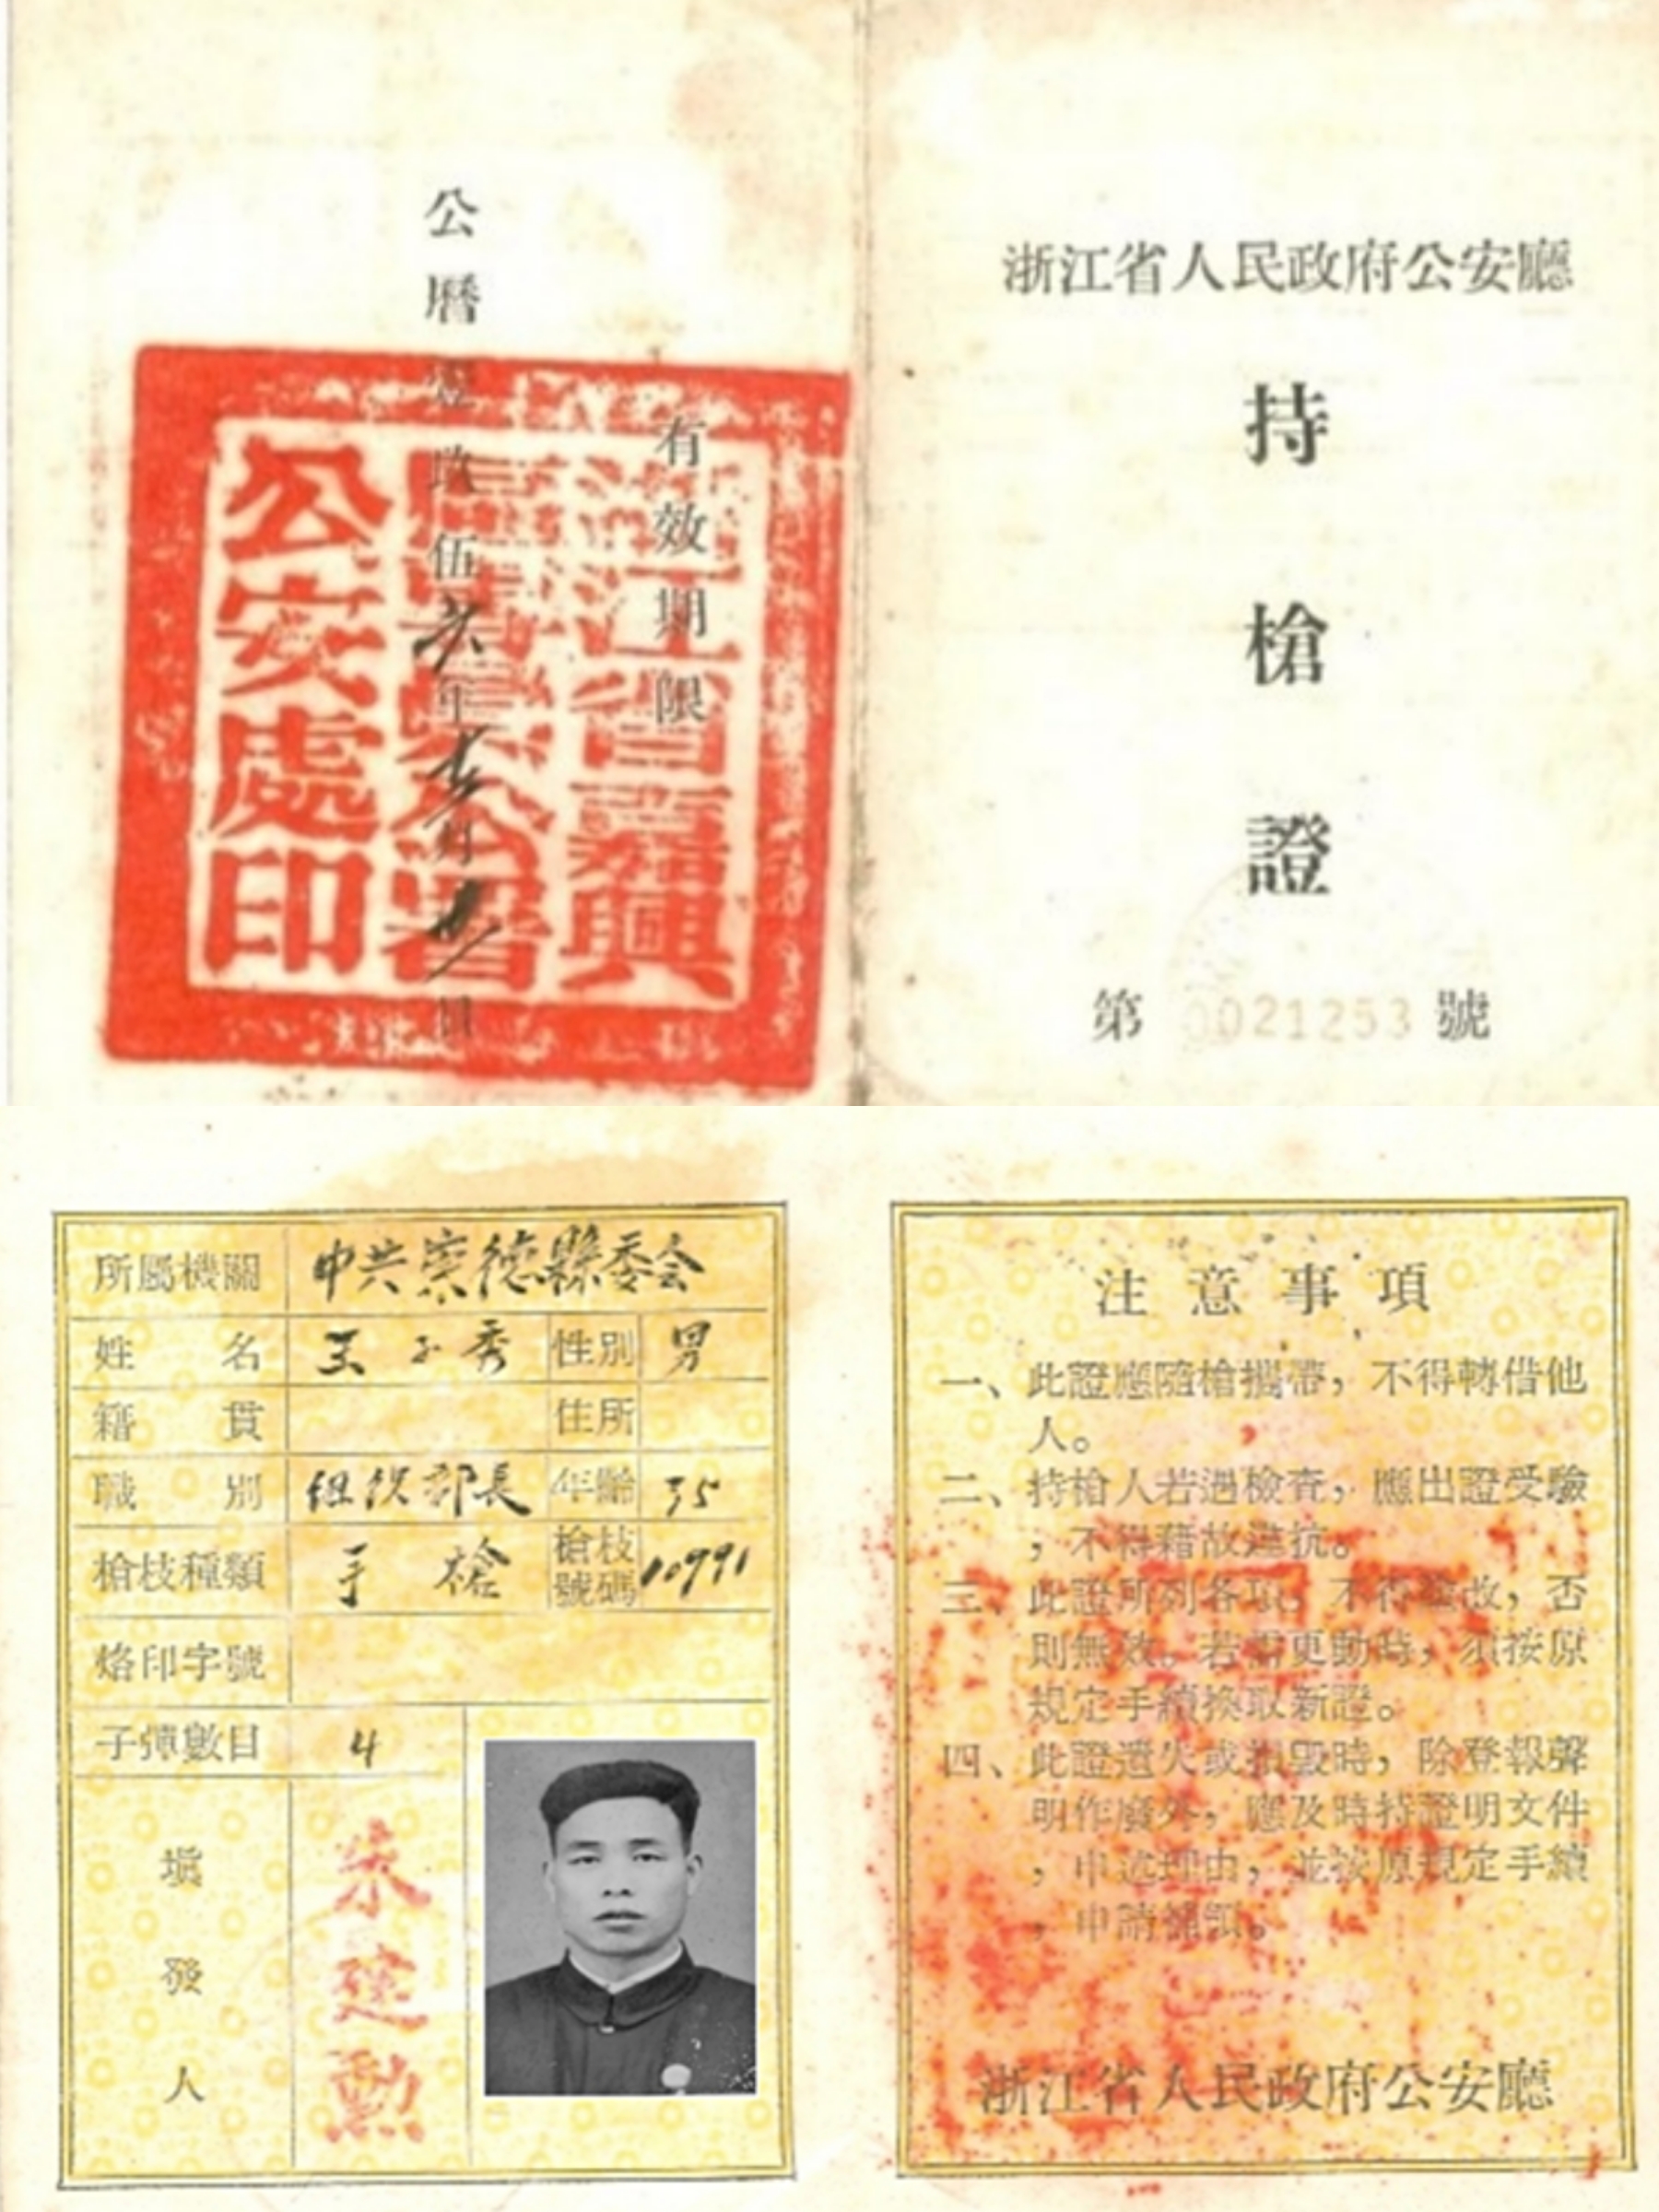 浙江省人民政府公安廳
持槍證
第0021253號
有效期限
公曆壹玖伍六年
月
日
浙江省嘉興
專員公署
公安處印
所屬機關 中共崇德縣委会
姓名 王子秀 性別 男
籍貫 住所
職別 组织部長 年齡 35
槍枝種類 手槍 槍枝號碼 10991
烙印字號
子彈數目 4
填發人 朱建勳
注意事項
一、此證應隨槍攜帶，不得轉借他
人。
二、持槍人若遇檢查，應出證受驗
，不得藉故違抗。
三、此證所列各項，不得塗改，否
則無效。若需更動時，須按原
規定手續換取新證。
四、此證遺失或損毀時，除登報聲
明作廢外，應及時持證明文件
，申述理由，並按原規定手續
，申請補領。
浙江省人民政府公安廳